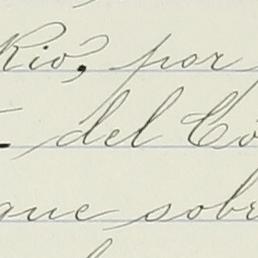 Rio, por
del Có
que sobre